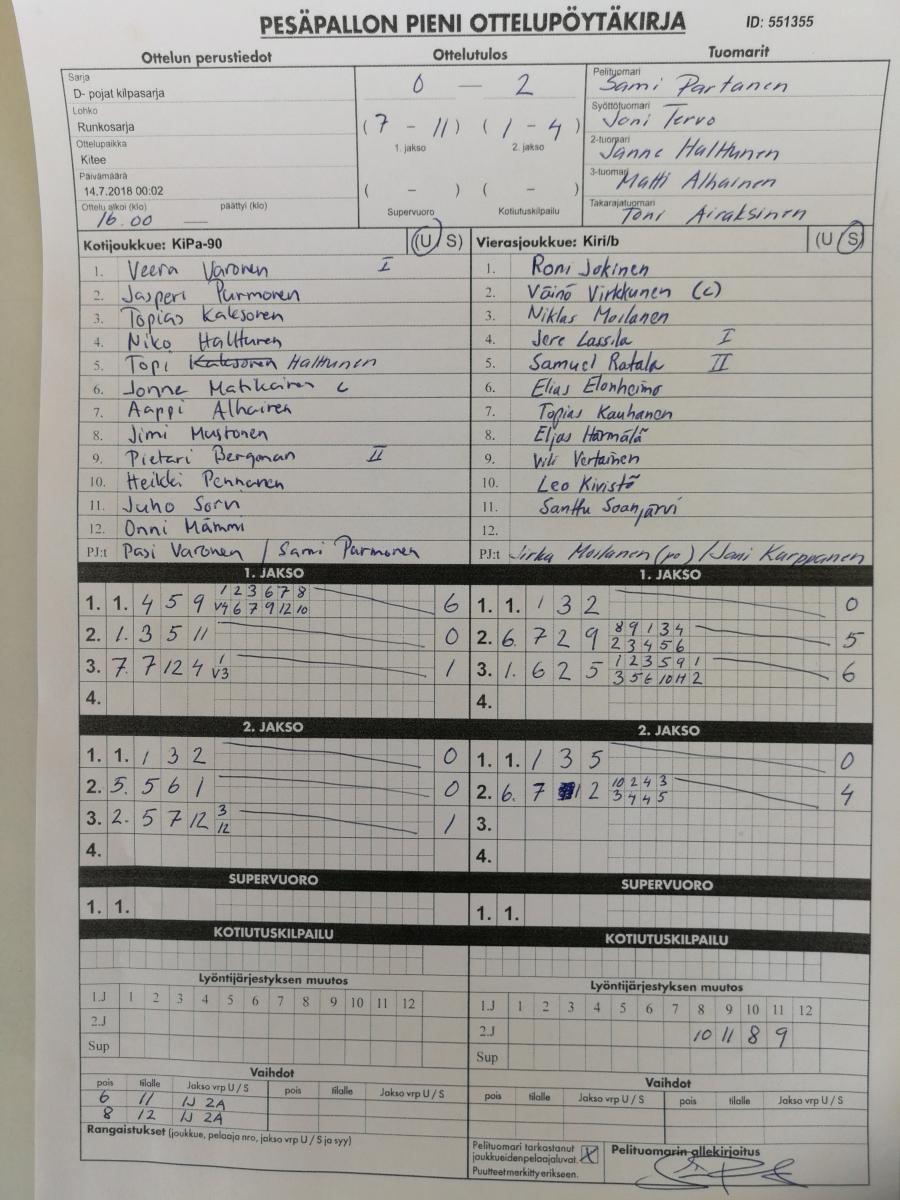 PESÄPALLON PIENI OTTELUPÖYTÄKIRJA ID: 551355
Ottelun perustiedot Ottelutulos Tuomarit
Sarja
D- pojat kilpasarja
Lohko
Runkosarja
Ottelupaikka
Kitee
Päivämäärä
14.7.2018 00:02
Ottelu alkoi (klo) päättyi (klo)
16.00 —
0 — 2
(7 - 11) (1 - 4)
1. jakso 2. jakso
( - ) ( - )
Supervuoro Kotiutuskilpailu
Pelituomari
Sami Partanen
Syöttötuomari
Joni Tervo
2-tuomari
Janne Halttunen
3-tuomari
Matti Alhainen
Takarajatuomari
Toni Airaksinen
Kotijoukkue: KiPa-90 (U / S)
1. Veera Varonen I
2. Jasperi Purmonen
3. Topias Kaksonen
4. Niko Halttunen
5. Topi Kaksonen Halttunen
6. Jonne Matikainen c
7. Aappi Alhainen
8. Jimi Mustonen
9. Pietari Bergman II
10. Heikki Pennanen
11. Juho Sorvi
12. Onni Mämmi
PJ:t Pasi Varonen / Sami Purmonen
Vierasjoukkue: Kiri/b (U / S)
1. Roni Jokinen
2. Väinö Virkkunen (c)
3. Niklas Moilanen
4. Jere Lassila I
5. Samuel Ratala II
6. Elias Elonheimo
7. Topias Kauhanen
8. Eljas Härmälä
9. Vili Vertainen
10. Leo Kivistö
11. Santtu Soanjärvi
12.
PJ:t Jirka Moilanen (po) / Jani Karppanen
1. JAKSO
1. 1. 4 5 9 1 2 3 6 7 8 6
V4 6 7 9 12 10
2. 1. 3 5 11 0
3. 7. 7 12 4 1 1
V3
4.
1. JAKSO
1. 1. 1 3 2 0
2. 6. 7 2 9 8 9 1 3 4 5
2 3 4 5 6
3. 1. 6 2 5 1 2 3 5 9 1 6
3 5 6 10 11 2
4.
2. JAKSO
1. 1. 1 3 2 0
2. 5. 5 6 1 0
3. 2. 5 7 12 3 1
12
4.
2. JAKSO
1. 1. 1 3 5 0
2. 6. 7 1 2 10 2 4 3 4
3 4 4 5
3.
4.
SUPERVUORO
1. 1.
SUPERVUORO
1. 1.
KOTIUTUSKILPAILU
KOTIUTUSKILPAILU
Lyöntijärjestyksen muutos
1.J 1 2 3 4 5 6 7 8 9 10 11 12
2.J
Sup
Lyöntijärjestyksen muutos
1.J 1 2 3 4 5 6 7 8 9 10 11 12
2.J 10 11 8 9
Sup
Vaihdot
pois tilalle Jakso vrp U / S pois tilalle Jakso vrp U / S
6 11 1J 2A
8 12 1J 2A
Vaihdot
pois tilalle Jakso vrp U / S pois tilalle Jakso vrp U / S
Rangaistukset (joukkue, pelaaja nro, jakso vrp U / S ja syy)
Pelituomari tarkastanut
joukkueiden pelaajaluvat. X
Puutteet merkitty erikseen.
Pelituomarin allekirjoitus